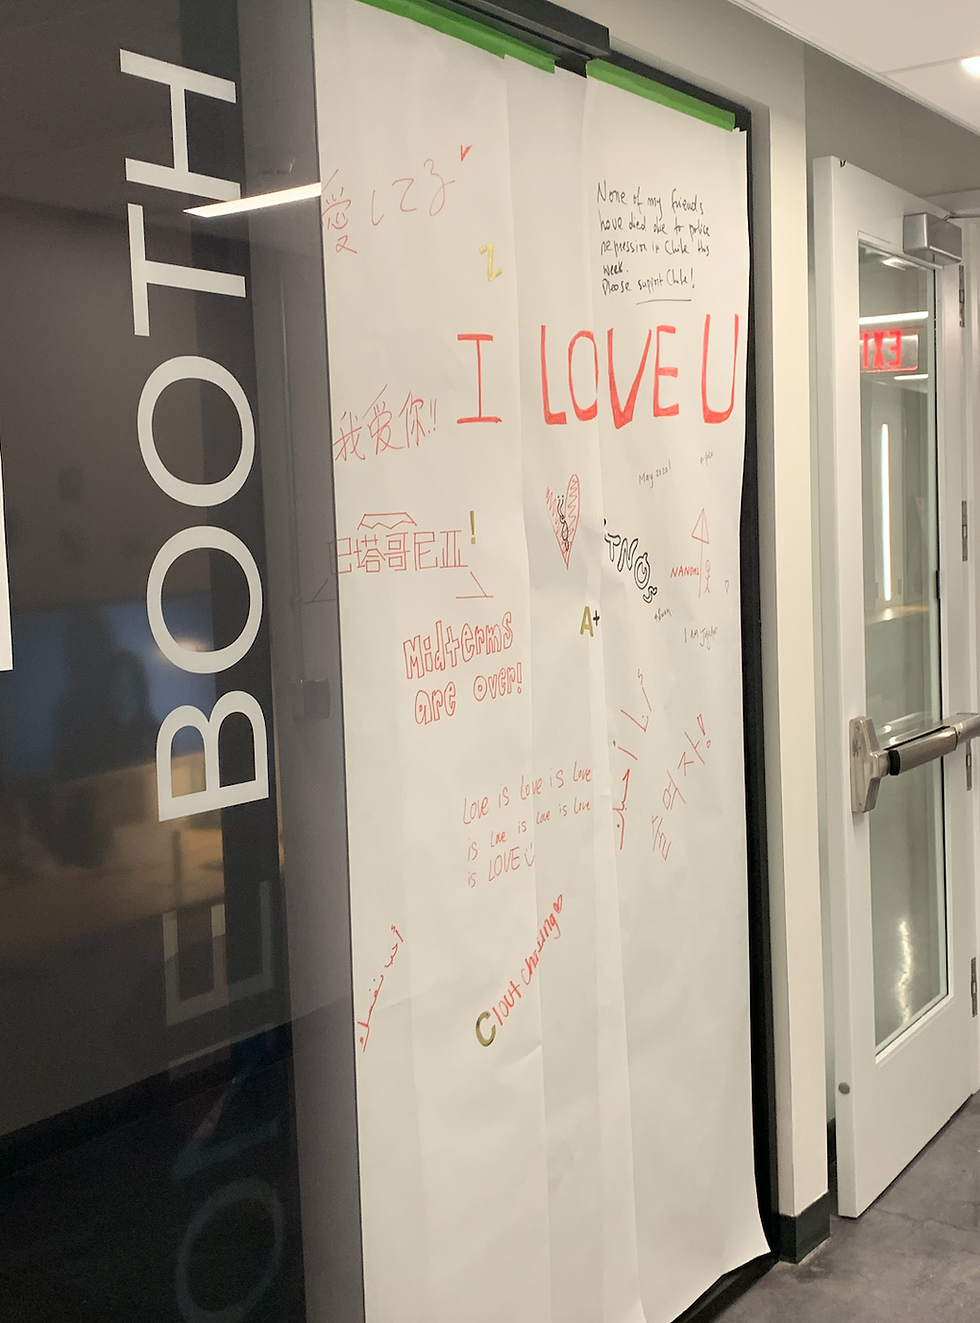 BOOTH
愛してる
Z
None of my friends
have died due to police
repression in Chile this
week.
Please support Chile!
I LOVE U
我爱你!!
May 2020!
巴塔哥尼亚!
TNO
NANDAZ
A+
Midterms
are over!
I am
Love is Love is Love
is Love is Love is Love
is LOVE
أحب نفسك
Clout chasing
EXIT